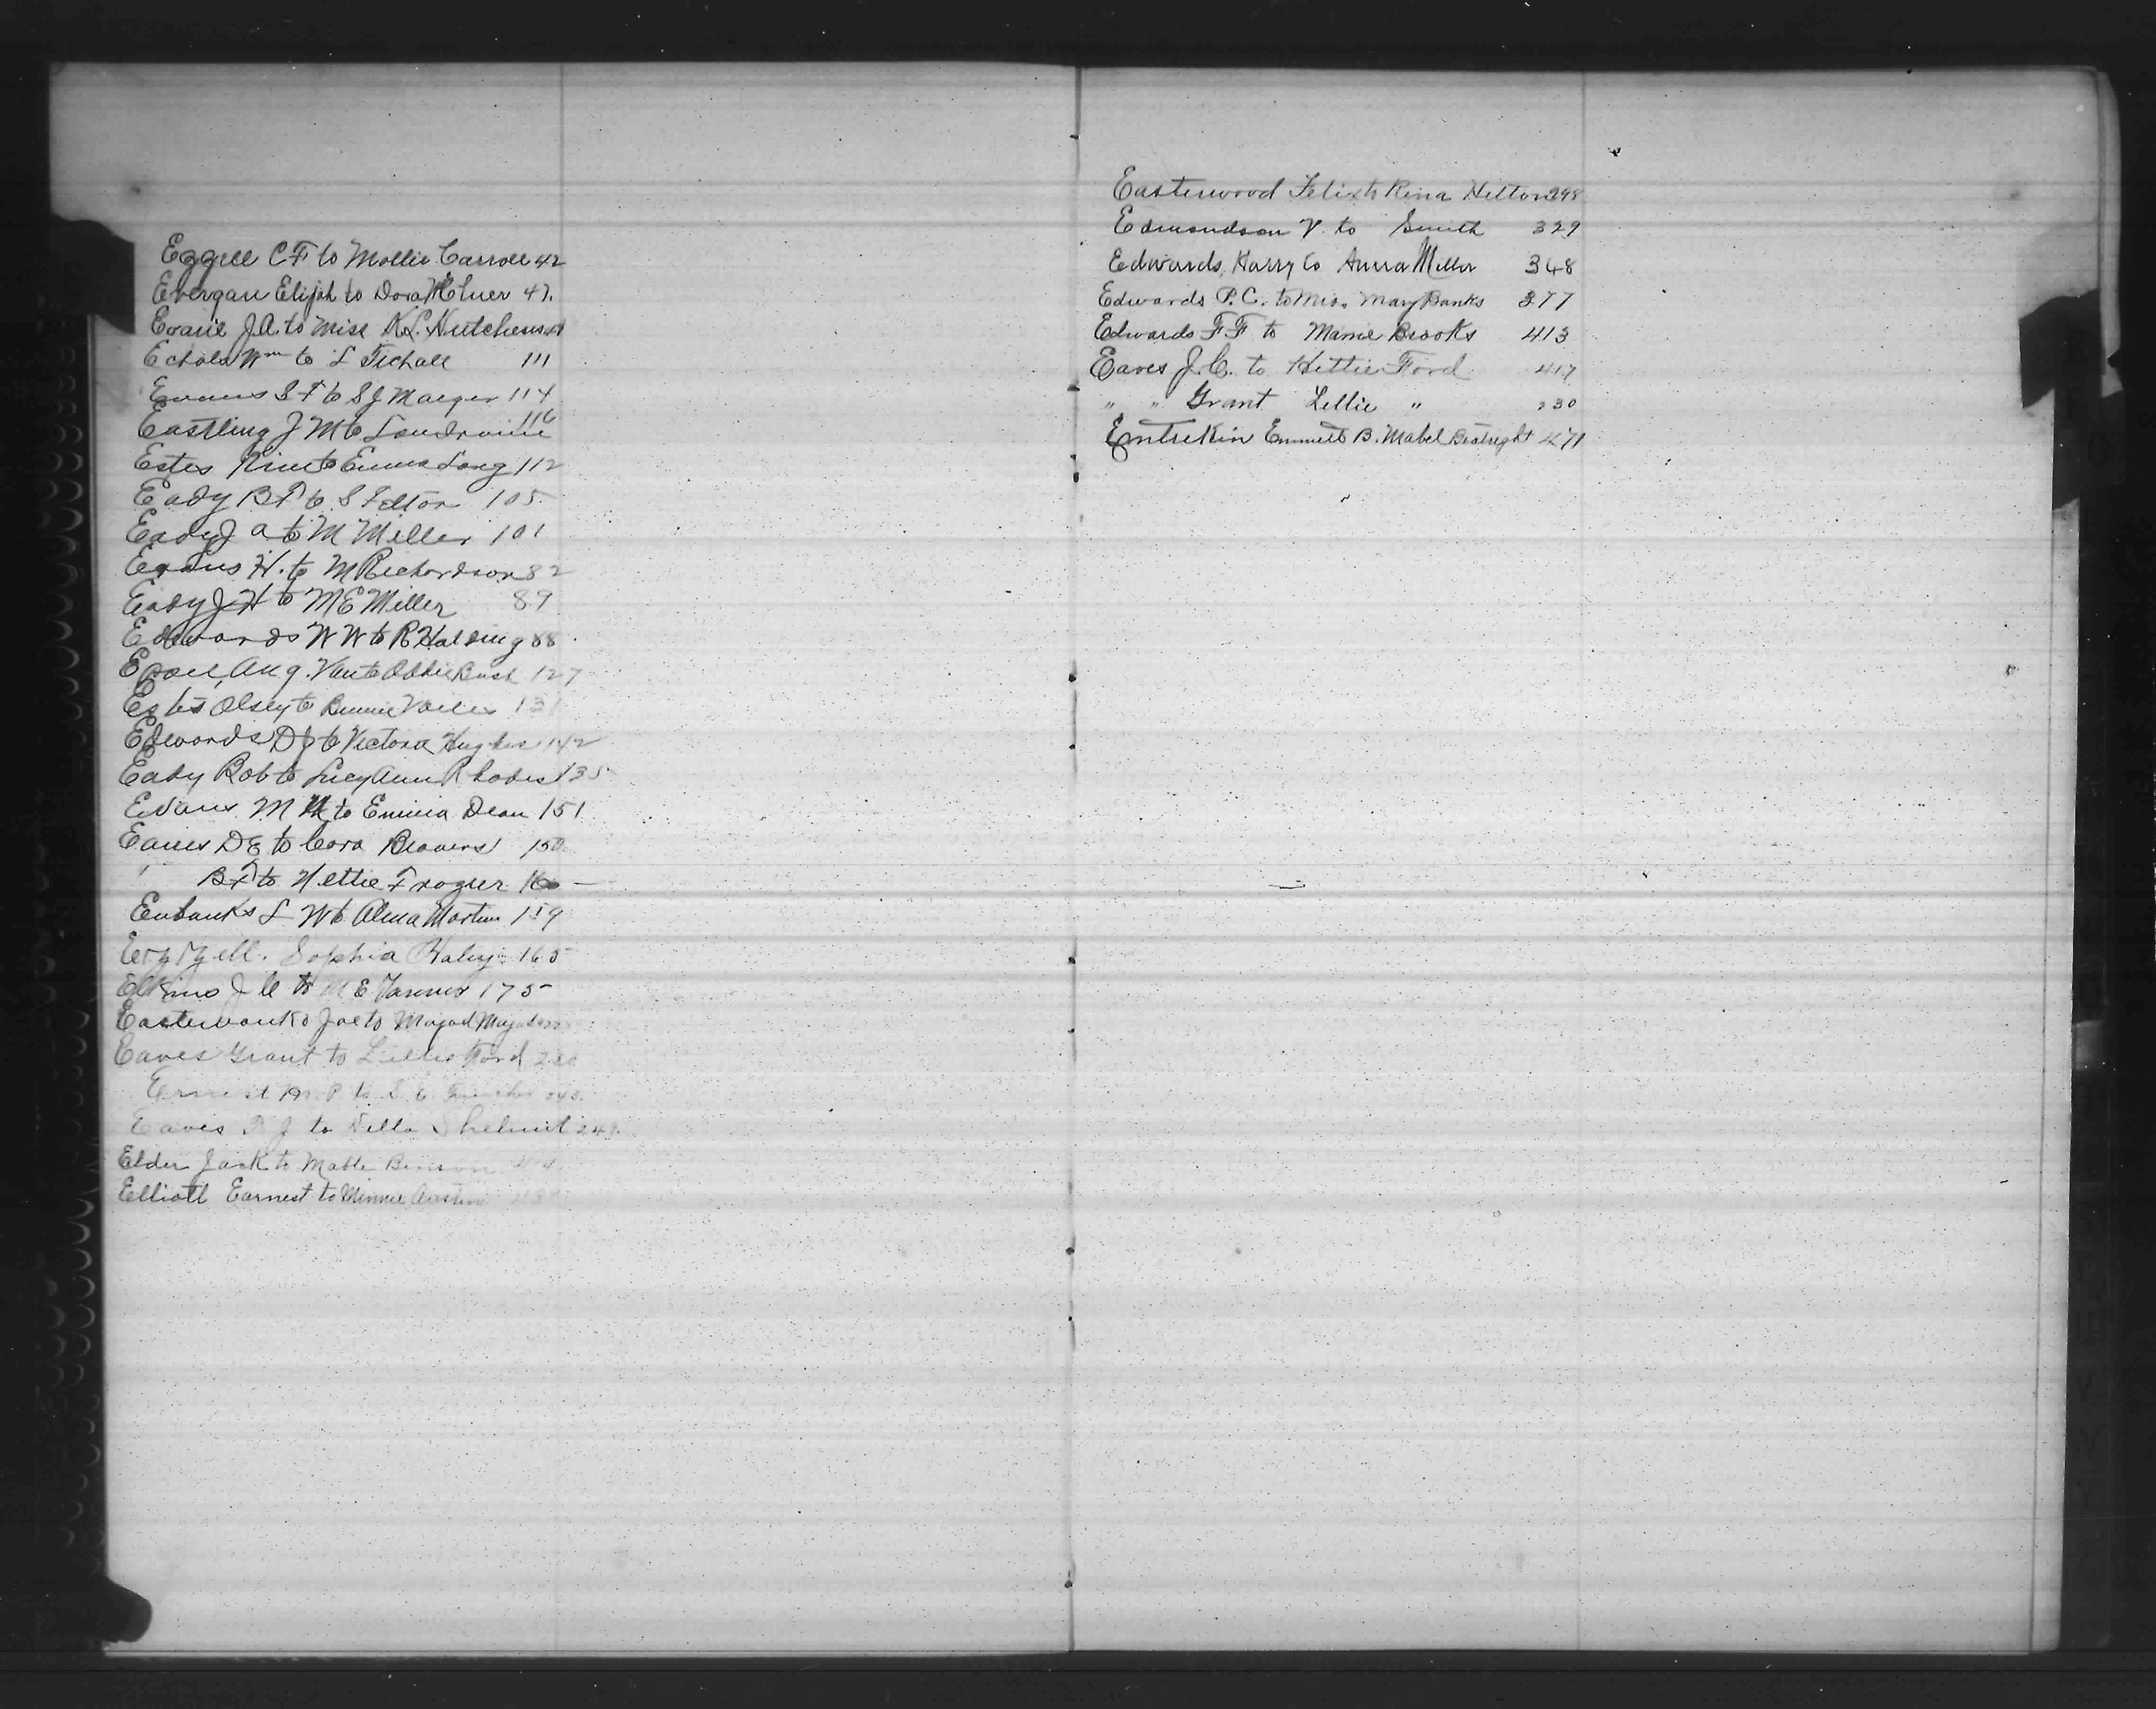 Eggell C F to Mollie Carroll 42
Evergan Elijah to Dora 47.
J. A. to Miss K L. Hutchens
Echols Wm to L Tichall 111
Evans S F to S J Maeger 114
Eastling J M to 116
Estes to Emma Long 112
Eady B F to S Felton 105
Eady J A to M Miller 101
Evans H. to M Richardson 82
Eady J H to M E Miller 89
Edwards W W to R Halding 88
Aug. Van to Addie Bush 127
Estes Olsey to 131
Edwards D J to Victora Hughes 142
Eady Bob to Lucy Ann Rhodes 135
Evans M to Emma Dean 151
Eaves D E to Cora Beavers 150
B F to Hettie Frazier
Eubanks L W to Alma Martin 159
Sophia Haley 165
Elkins J C to M E 175
Joe to
Eaves Grant to Lillie Ford 230
Ernest M. P to S. E.
Eaves R J to Della Shelnut 249.
Elder Jack to Mable
Elliott Earnest to Minnie Austin
Easterwood Felix to Rena Hilton 298
Edmondson V. to Smith 329
Edwards, Harry to Anna Miller 348
Edwards P. C. to Miss. Mary Banks 377
Edwards F F to Mamie Brooks 413
Eaves J. C. to Hettie Ford 417
" " Grant Lillie " 230
Entrekin Emmett B. Mabel Boatright 471